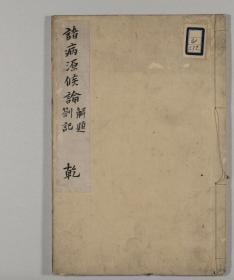 諸病源候論
解題
劄記
乾